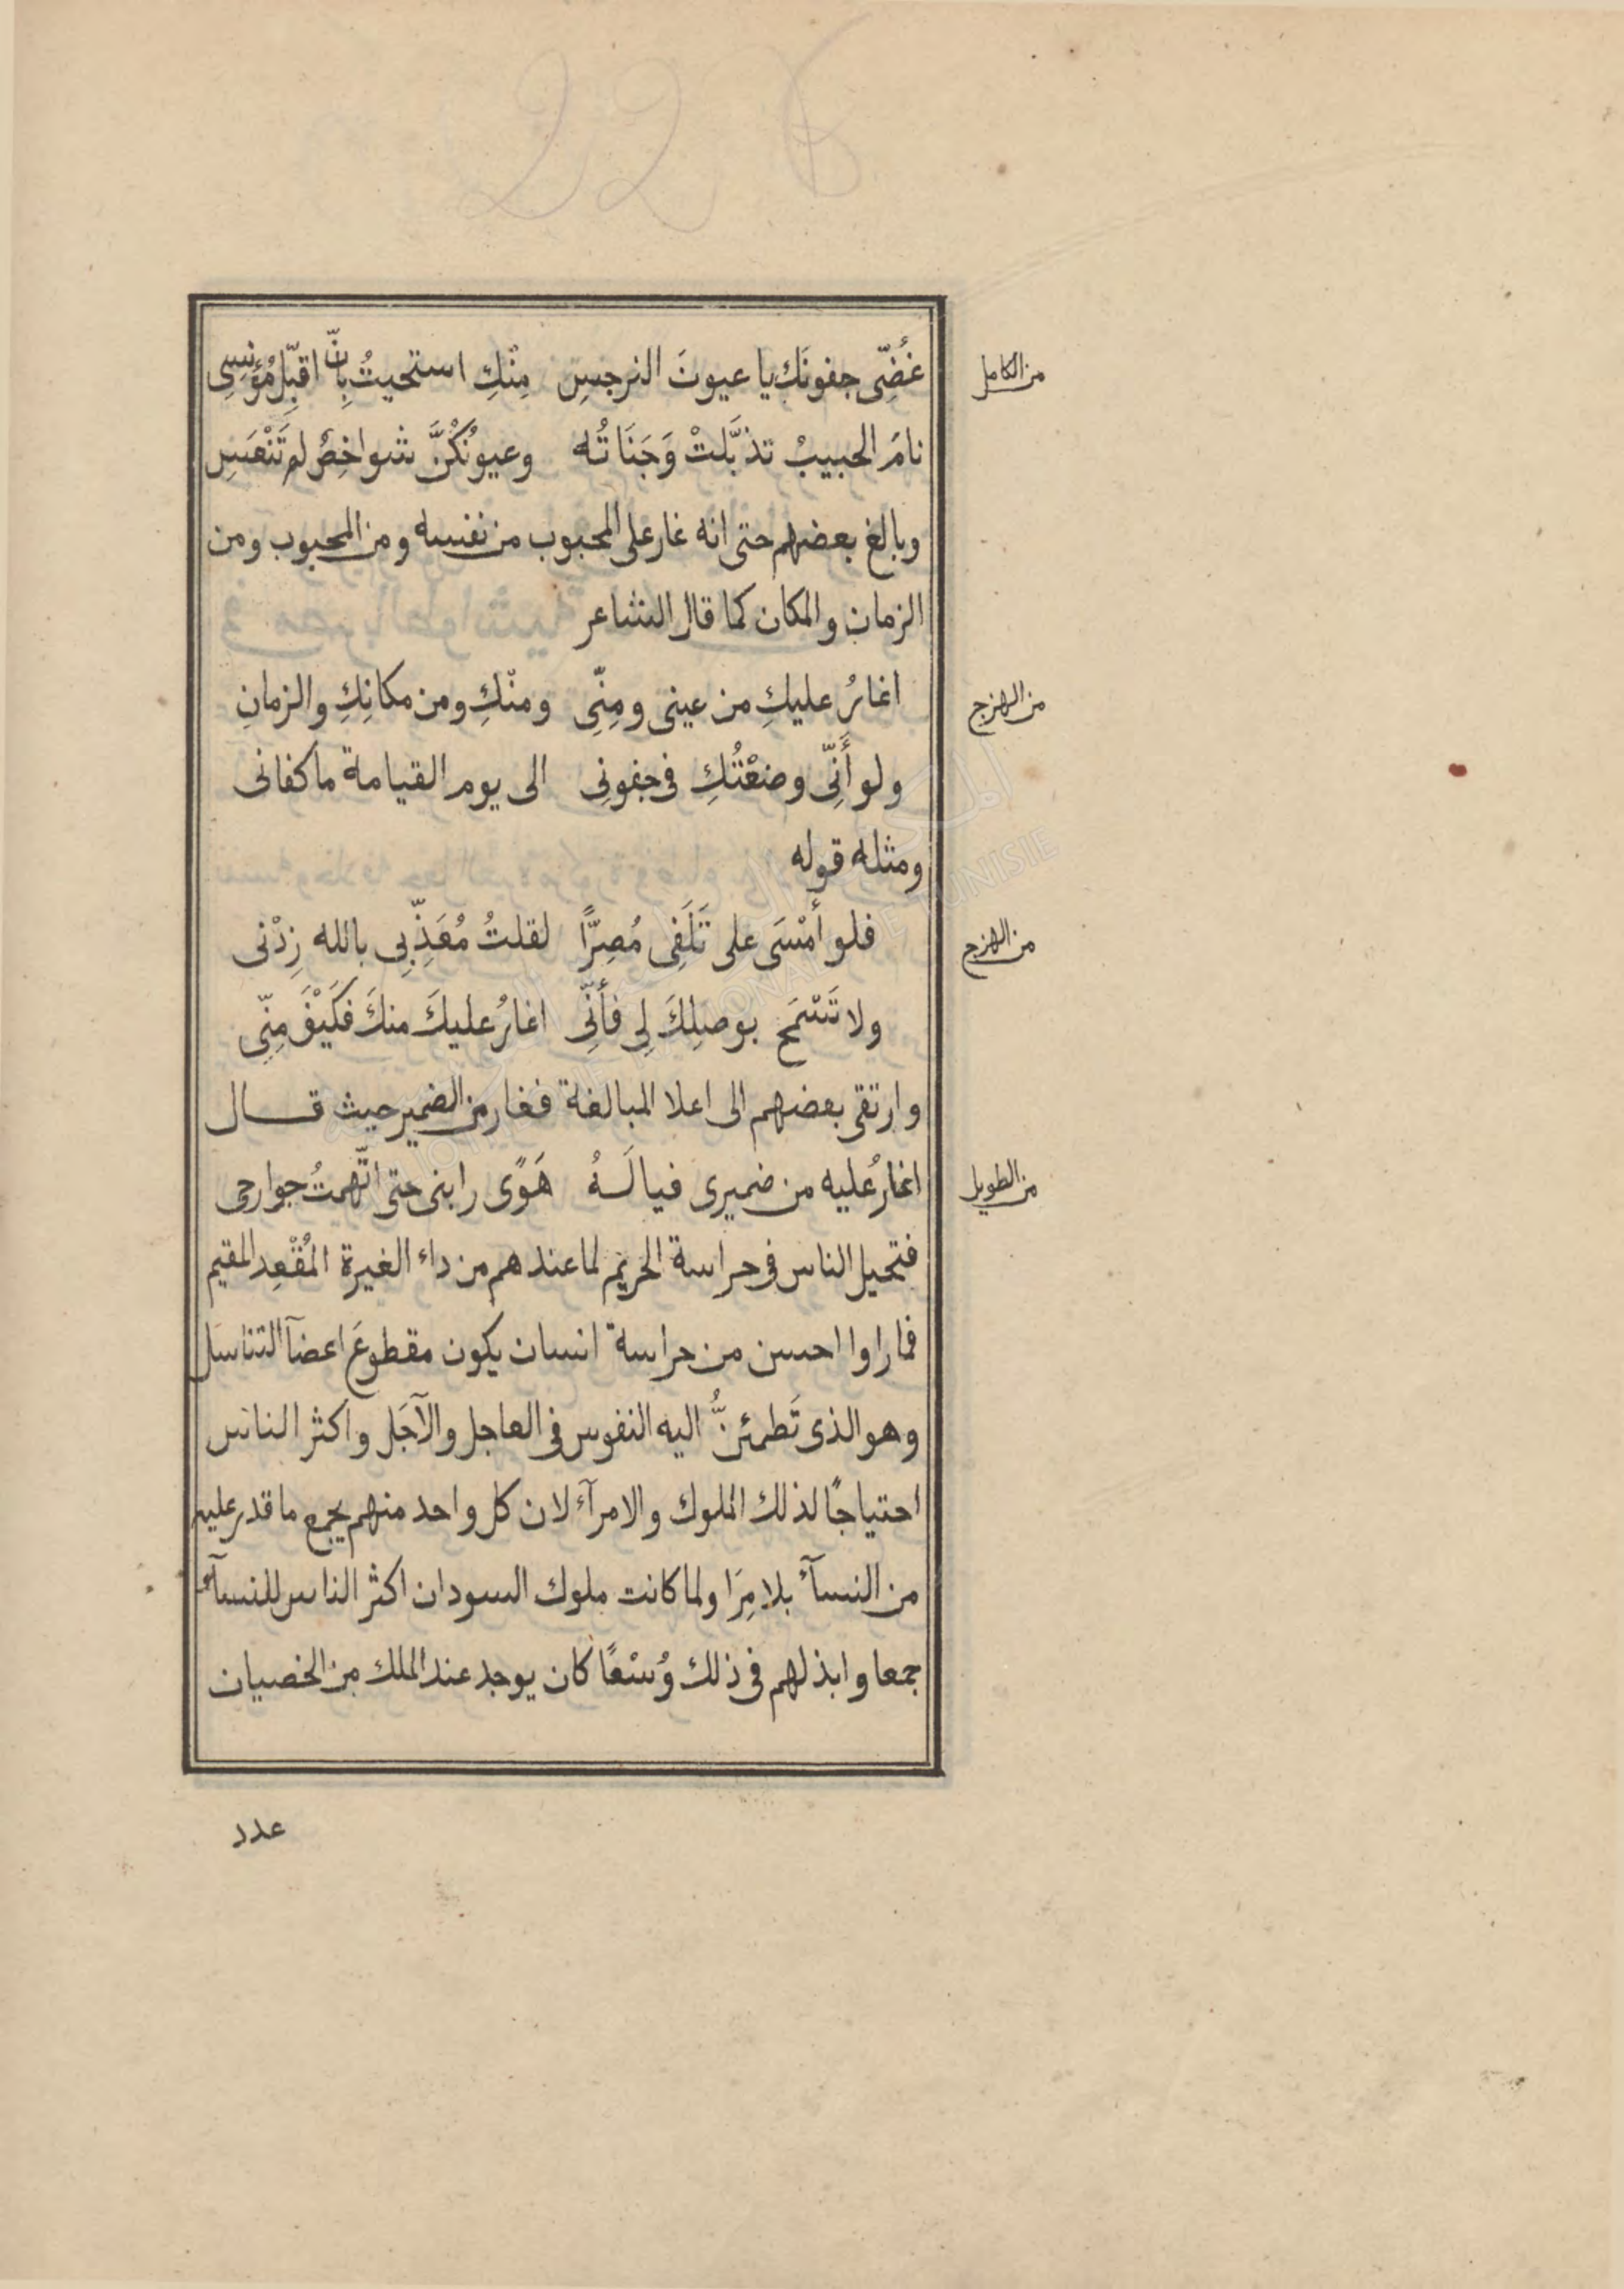 226
من الكامل
غُضِّى جفونَك يا عيونَ النرجسِ مِنْكِ استحيتُ بِأنّ اقبِّل مُؤنسِى
نامَ الحبيبُ تذبَّلتْ وَجَنَاتُه وعيونُكُنَّ شواخِصٌ لم تَنْعَسِ
وبالغ بعضهم حتى انه غار على المحبوب من نفسه ومن المحبوب ومن
الزمان والمكان كما قال الشاعر
من الهزج
اغارُ عليكِ من عينى ومِنِّى ومنْكِ ومن مكانِكِ والزمانِ
ولو أَنِّى وضعْتُكِ فى جفونِى الى يوم القيامة ما كفانى
ومثله قوله
من الهزج
فلو أمْسَى على تَلَفِى مُصِرًّا لقلتُ مُعَذِّبِى بالله زِدْنى
ولا تَسْمَح بوصلِكَ لِى فأنِّى اغارُ عليكَ منكَ فكَيْفَ مِنِّى
وارتقى بعضهم الى اعلا المبالغة فغار من الضمير حيث قال
من الطويل
اغارُ عليه من ضميرى فيا لَهُ هَوًى رابنى حتى اتّهمتُ جوارحى
فتحيل الناس فى حراسة الحريم لما عندهم من داء الغيرة المُقْعِد المقيم
فما راوا احسن من حراسة انسان يكون مقطوعَ اعضآ التناسل
وهو الذى تَطمئنُّ اليه النفوس فى العاجل والآجَل واكثر الناس
احتياجًا لذلك الملوك والامرآء لان كل واحد منهم يجمع ما قدر عليه
من النسآء بلا مِرَا ولما كانت ملوك السودان اكثر الناس للنسآء
جمعا وابذلهم فى ذلك وُسْعًا كان يوجد عند الملك من الخصيان
عدد